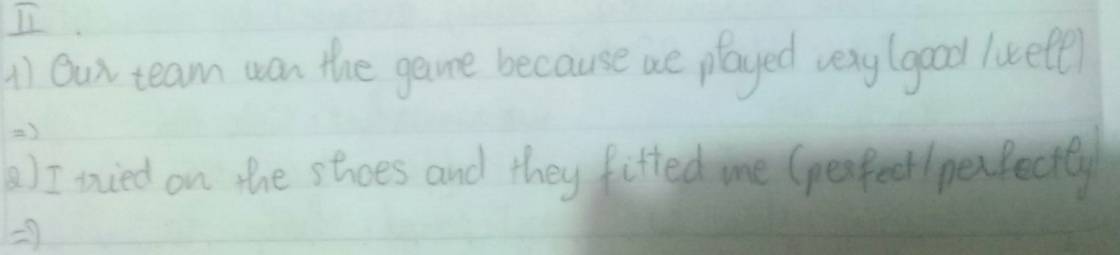 II.
1) Our team won the game because we played very (good / well)
=)
2) I tried on the shoes and they fitted me (perfect / perfectly
=)